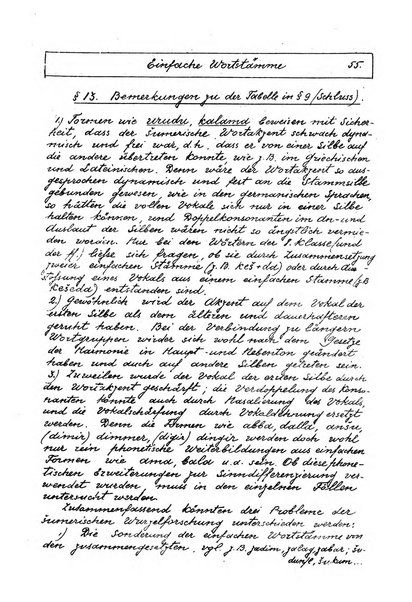 Einfache Wortstämme 55.
§ 13. Bemerkungen zu der Tabelle in § 9 (Schluss).
1) Formen wie urudu, kalamd beweisen mit Sicher-
heit, dass der šumerische Wortakzent schwach dyna-
misch und frei war, d.h. dass er von einer Silbe auf
die andere übertreten konnte, wie z.B. im Griechischen
und Lateinischen. Denn wäre der Wortakzent so aus-
gesprochen dynamisch und fest an die Stammsilbe
gebunden gewesen, wie in den germanischen Sprachen,
so hätten die vollen Vokale sich nur in einer Silbe
halten können, und Doppelkonsonanten im An- und
Auslaut der Silben wären nicht so ängstlich vermie-
den worden. Nur bei den Wörtern der 1. Klasse (und
der ff.) liesse sich fragen, ob sie durch Zusammensetzung
zweier einfachen Stämme (z.B. Keš + dd) oder durch
eines Vokals aus einem einfachen Stamme (z.B.
Kešedd) entstanden sind.
2.) Gewöhnlich wird der Akzent auf dem Vokal der
ersten Silbe als dem älteren und dauerhafteren
geruht haben. Bei der Verbindung zu längern
Wortgruppen wird er sich wohl nach dem Gesetze
der Harmonie in Haupt- und Nebenton geändert
haben und auch auf andere Silben getreten sein.
3.) Zuweilen wurde der Vokal der ersten Silbe durch
den Wortakzent geschärft; die Verdoppelung des Konso-
nanten könnte auch durch Nasalierung des Vokals,
und die Vokalschärfung durch Vokaldehnung ersetzt
werden. Denn die Formen wie abba, dalla, anšu,
(dimir) dimmer, (digir) dingir werden doch wohl
nur rein phonetische Weiterbildungen aus einfachen
Formen wie ama, bala u.a. sein. Ob diese phone-
tischen Erweiterungen zur Sinndifferenzierung ver-
wendet wurden, muss in den einzelnen Fällen
untersucht werden.
Zusammenfassend könnten drei Probleme der
šumerischen Wurzelforschung unterschieden werden:
1) Die Sonderung der einfachen Wortstämme von
den zusammengesetzten, vgl. z.B. zadim, zalag, zabar; šu-